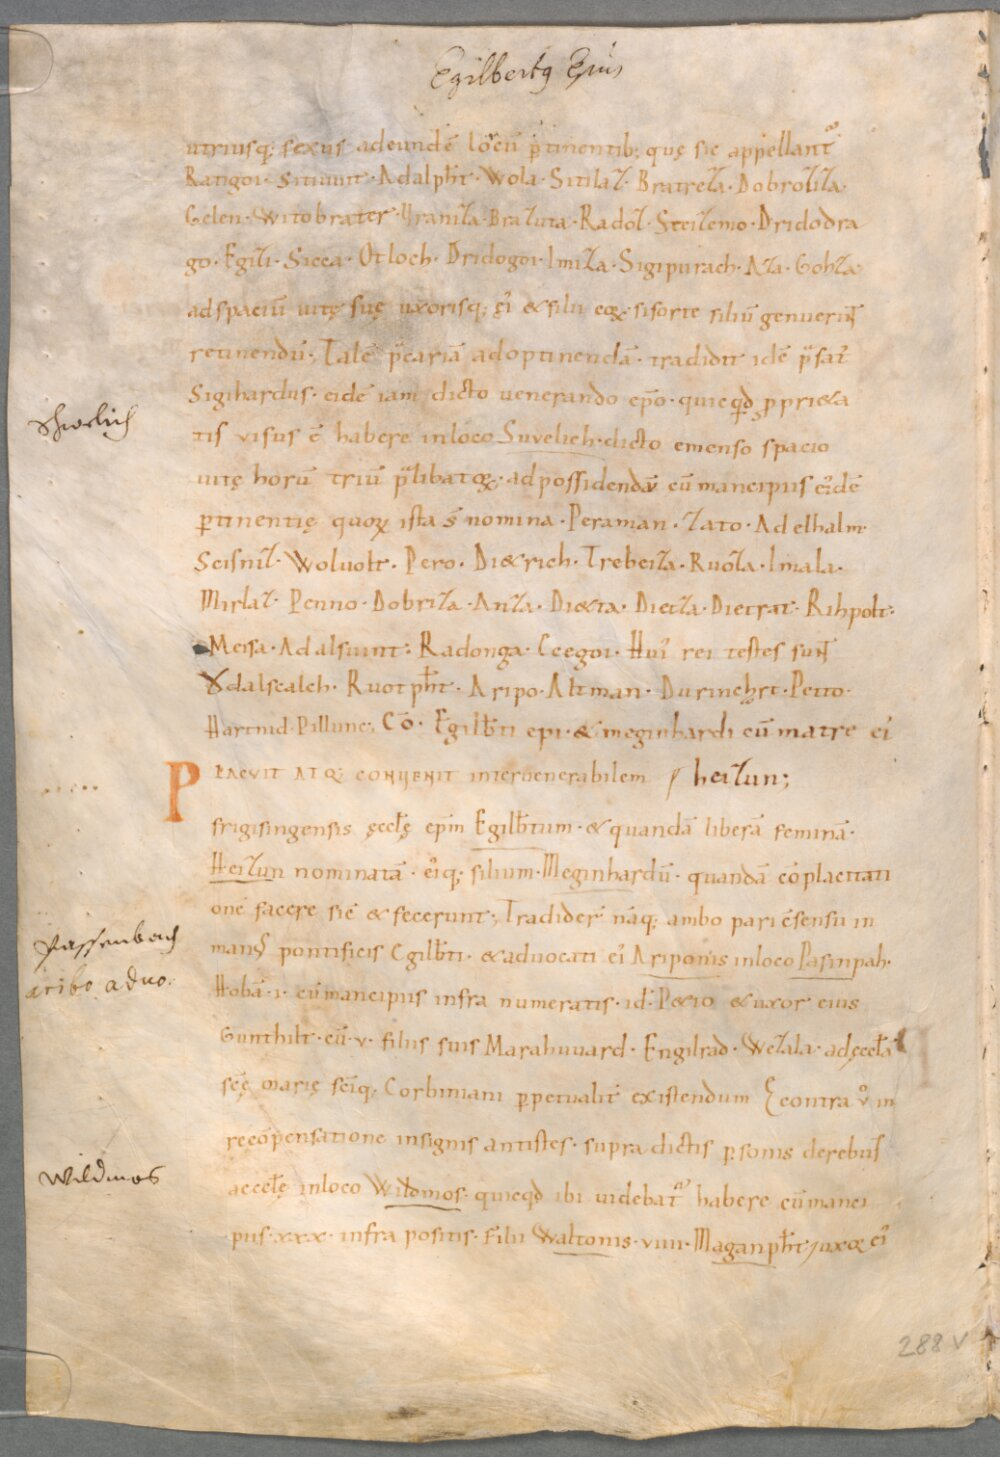 Egilbertꝰ Ep̄us
utriusq; sexus adeundē locū ꝑtinentib; quę sic appellant᷑
Ratigoi · Sitiuuit · Adalp̄ht · Wola · Sitilaz · Bratreza · Dobroziza ·
Gelen · Witobrater · Graniza · Brazuta · Radoz · Steizemo · Dridodra
go · Egizi · Sicca · Otloch · Dridogoi · Imiza · Sigipurach · Aza · Gohza
adspaciū uitę suę uxorisq; ei᾽ & filii eoꝝ · si forte filiū genuerint
retinendū; Talē p̄cariā adoptinendā · tradidit idē p̄fat᾽
Sigihardus · eidē iam dicto uenerando ep̄o · quicqd ꝓprieta
tis visus ē habere inloco Suvelich · dicto emenso spacio
uitę horū triū p̄libatoꝝ · adpossidendū cū mancipiis ei᾽dē
ꝑtinentię quoꝝ ista s̄ nomina · Peraman · Zato · Adelhalm ·
Scisniz · Woluolt · Pero · Di&rich · Trebeiza · Ruoza · Imala ·
Mirlaz · Penno · Dobriza · Anza · Di&ta · Dietza · Dietrat · Rihpolt ·
Meisa · Adalsuint · Radonga · Ceegoi · Hui᾽ rei testes sunt
Ǒdalscalch · Ruotp̄ht · Aripo · Altman · Durinc̄hrt · Petto ·
Hartnid · Pillunc; Cō · Egilb̄ti epi · & meginhardi cū matre ei᾽
PLACVIT ATQ; CONVENIT interuenerabilem / heizun;
frigisingensis ęccłę ep̄m Egilb̄tum · & quandā liberā feminā ·
Heizun nominatā · ei᾽q; filium · Meginhardū · quandā cōplacitati
onē facere sic & fecerunt; Tradider̄ nāq; ambo pari c̄sensu in
man᾽ pontificis Egilb̄ti · & aduocati ei᾽ Ariponis inloco Pasinpah ·
Hobā · i · cū mancipiis infra numeratis · id ̄ P&io & uxor eius
Gunthilt · cū · v · filiis suis Marahuuard · Engilrad · Wezala · adęccłā
scę̄ marię sc̄iq; Corbiniani ꝑpetualit᾽ existendum E contra v̊ in
recōpensatione insignis antistes · supra dictis ꝑsonis derebus
accłę inloco Wildmos · quicqd ibi uidebat᷑ habere cū manci
piis · xxx · infra positis · Filii Waltonis · viiii · Maganp̄ht / uxoꝝ ei᾽
Passenbach
aribo aduo.
Wildmos
288 v